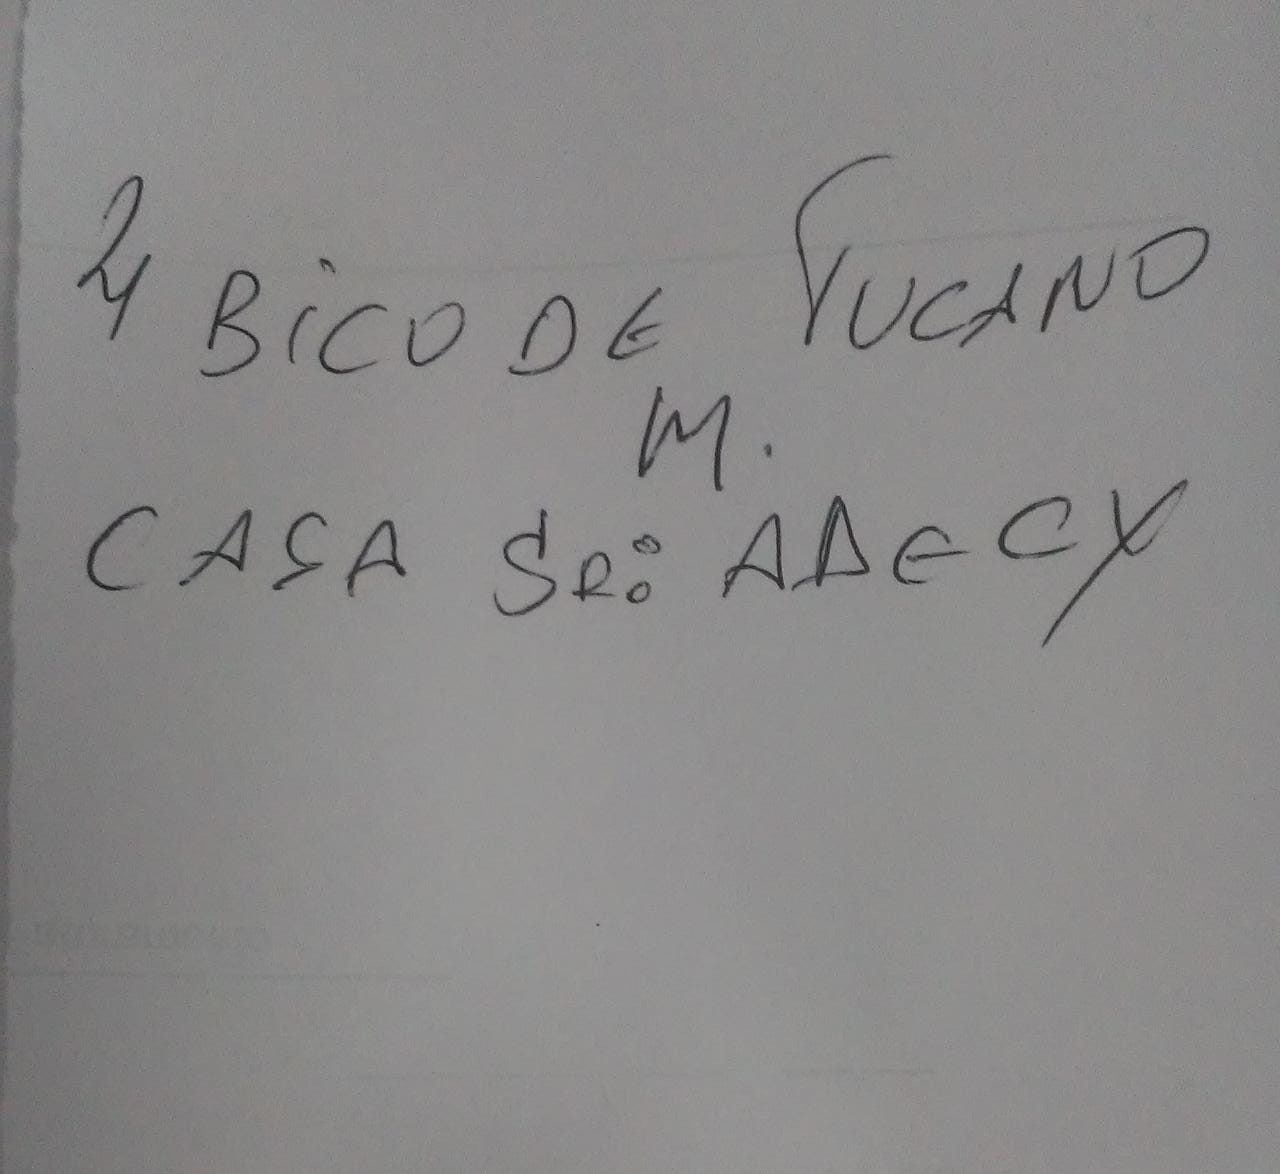 4 BiCO DE TUCANO
M.
CASA SR: ADECY